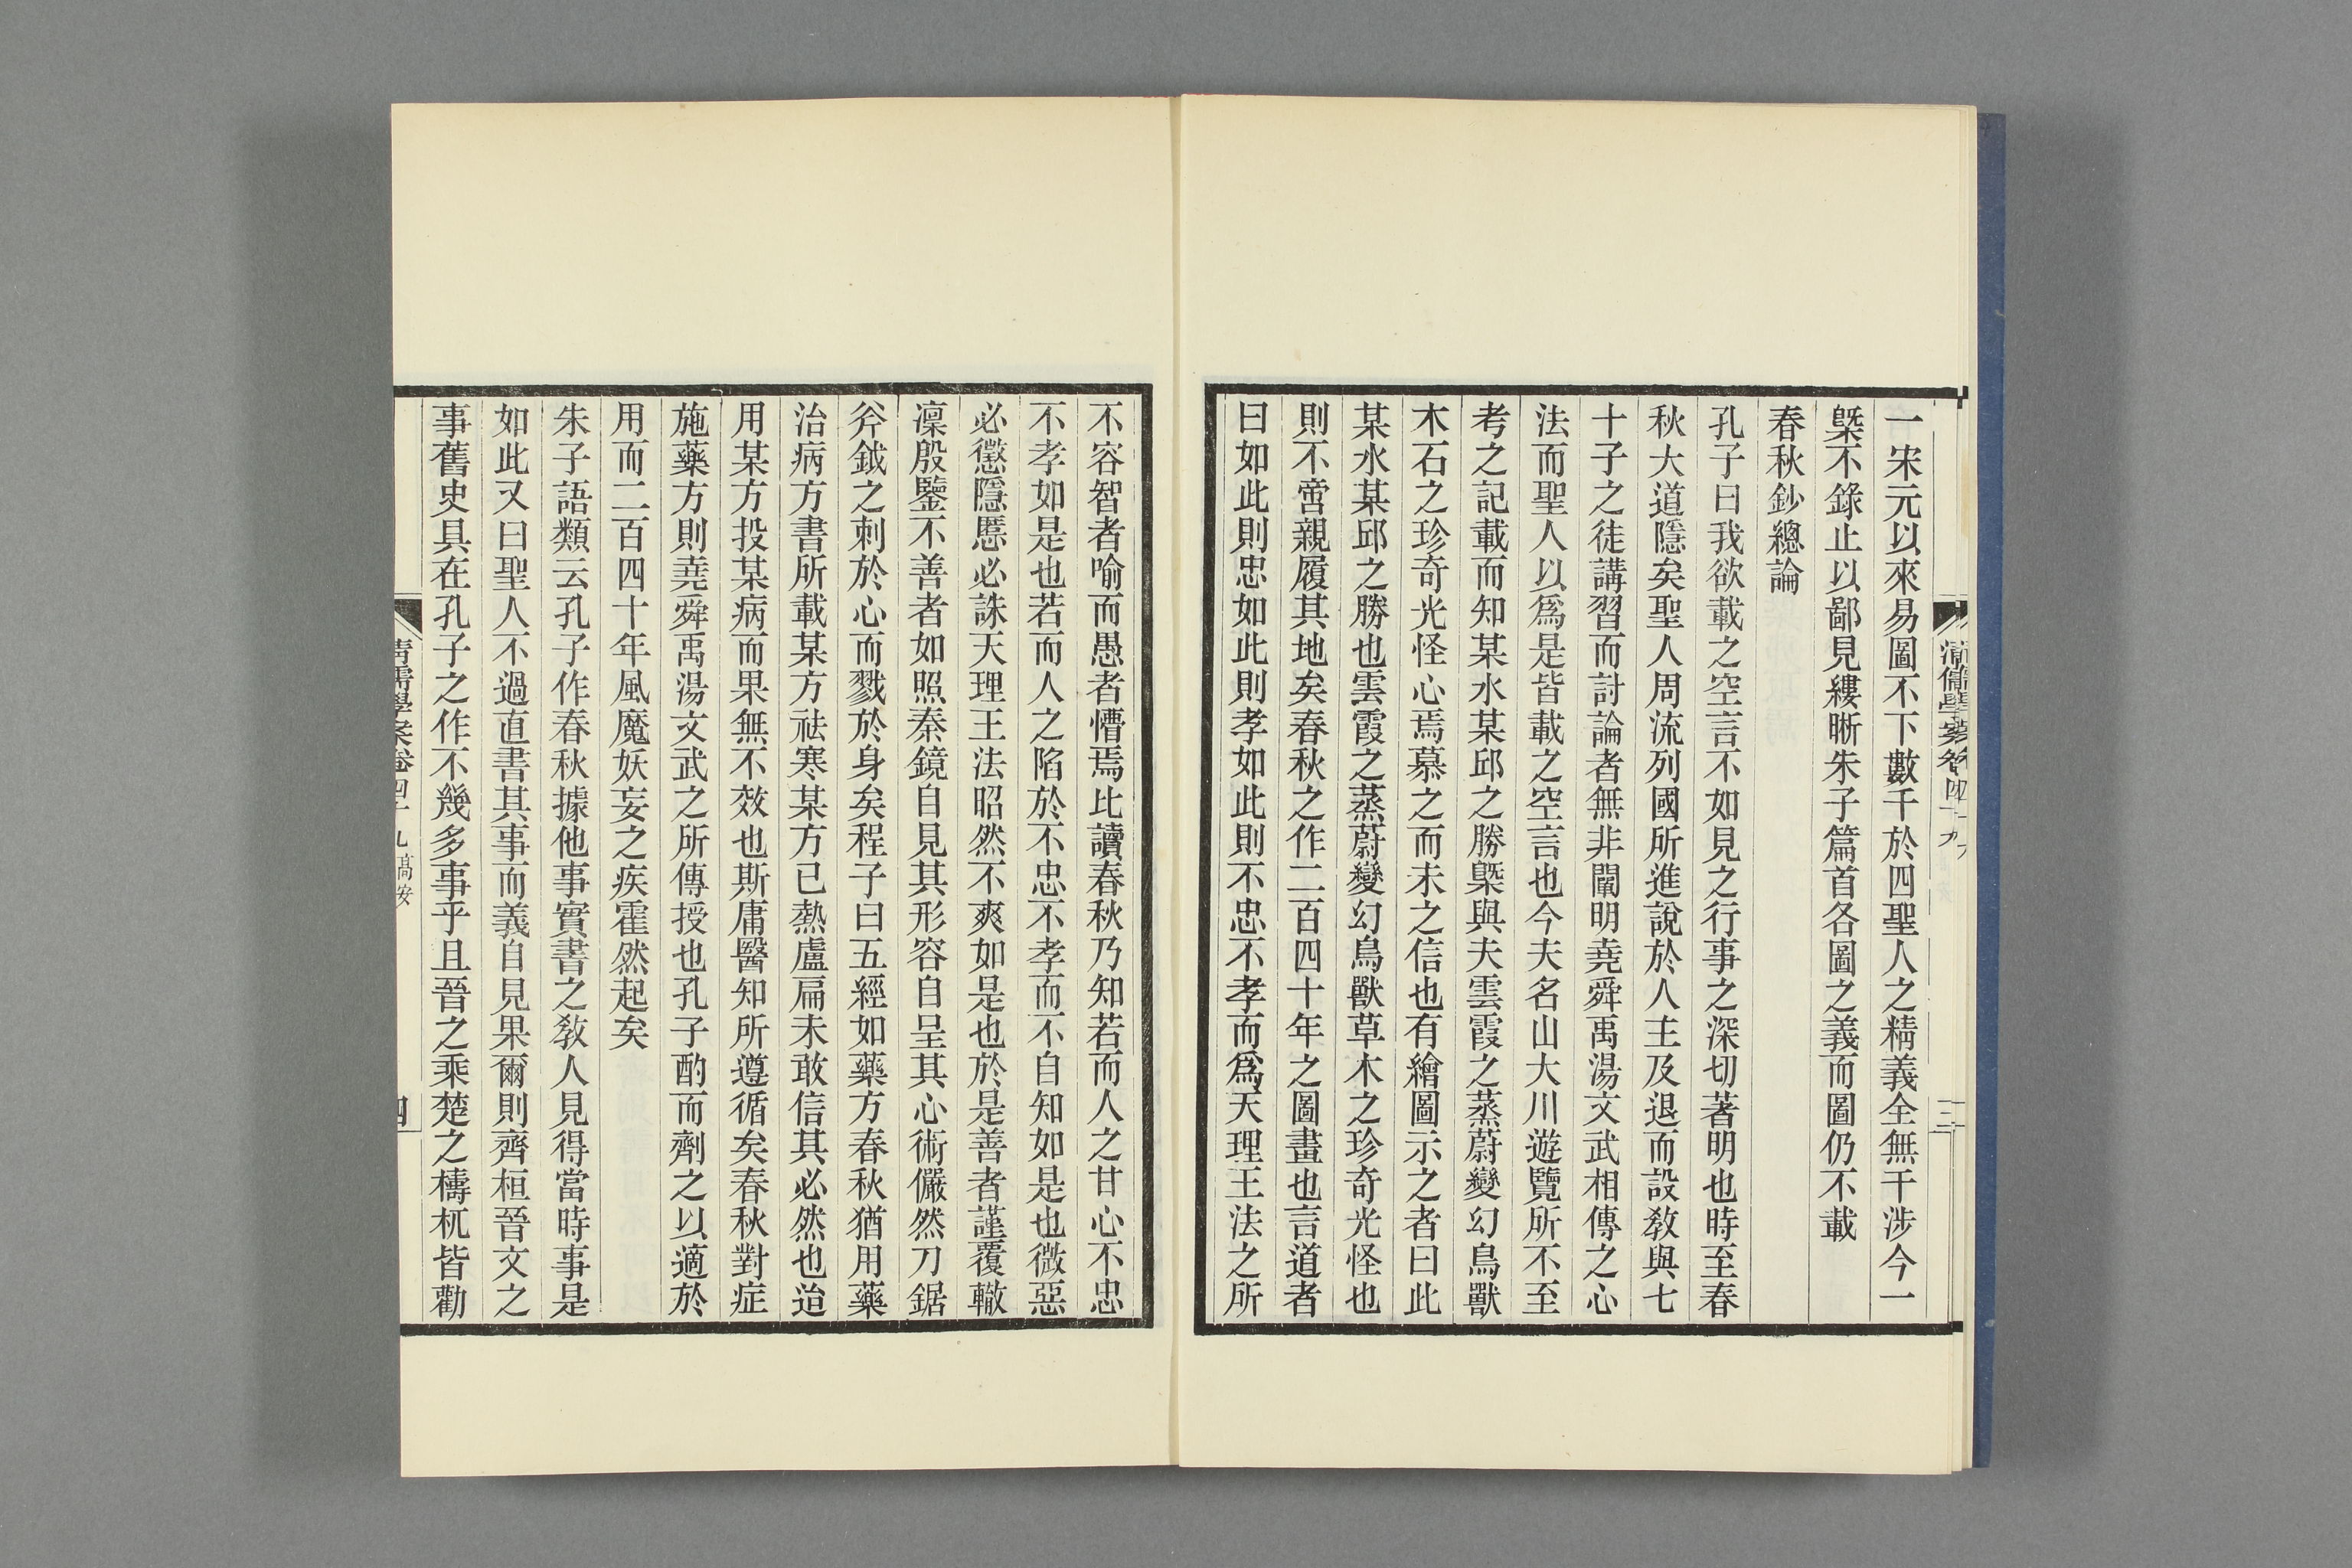 一宋元以來易圖不下數千於四聖人之精義全無干涉今一
槩不錄止以鄙見縷晰朱子篇首各圖之義而圖仍不載
春秋鈔總論
孔子曰我欲載之空言不如見之行事之深切著明也時至春
秋大道隱矣聖人周流列國所進說於人主及退而設敎與七
十子之徒講習而討論者無非闡明堯舜禹湯文武相傳之心
法而聖人以爲是皆載之空言也今夫名山大川遊覽所不至
考之記載而知某水某邱之勝槩與夫雲霞之蒸蔚變幻鳥獸
木石之珍奇光怪心焉慕之而未之信也有繪圖示之者曰此
某水某邱之勝也雲霞之蒸蔚變幻鳥獸草木之珍奇光怪也
則不啻親履其地矣春秋之作二百四十年之圖畫也言道者
曰如此則忠如此則孝如此則不忠不孝而爲天理王法之所
不容智者喻而愚者懵焉比讀春秋乃知若而人之甘心不忠
不孝如是也若而人之陷於不忠不孝而不自知如是也微惡
必懲隱慝必誅天理王法昭然不爽如是也於是善者謹覆轍
凜殷鑒不善者如照秦鏡自見其形容自呈其心術儼然刀鋸
斧鉞之刺於心而戮於身矣程子曰五經如藥方春秋猶用藥
治病方書所載某方祛寒某方已熱盧扁未敢信其必然也迨
用某方投某病而果無不效也斯庸醫知所遵循矣春秋對症
施藥方則堯舜禹湯文武之所傳授也孔子酌而劑之以適於
用而二百四十年風魔妖妄之疾霍然起矣
朱子語類云孔子作春秋據他事實書之敎人見得當時事是
如此又曰聖人不過直書其事而義自見果爾則齊桓晉文之
事舊史具在孔子之作不幾多事乎且晉之乘楚之檮杌皆勸
清儒學案卷四十九 高安
四